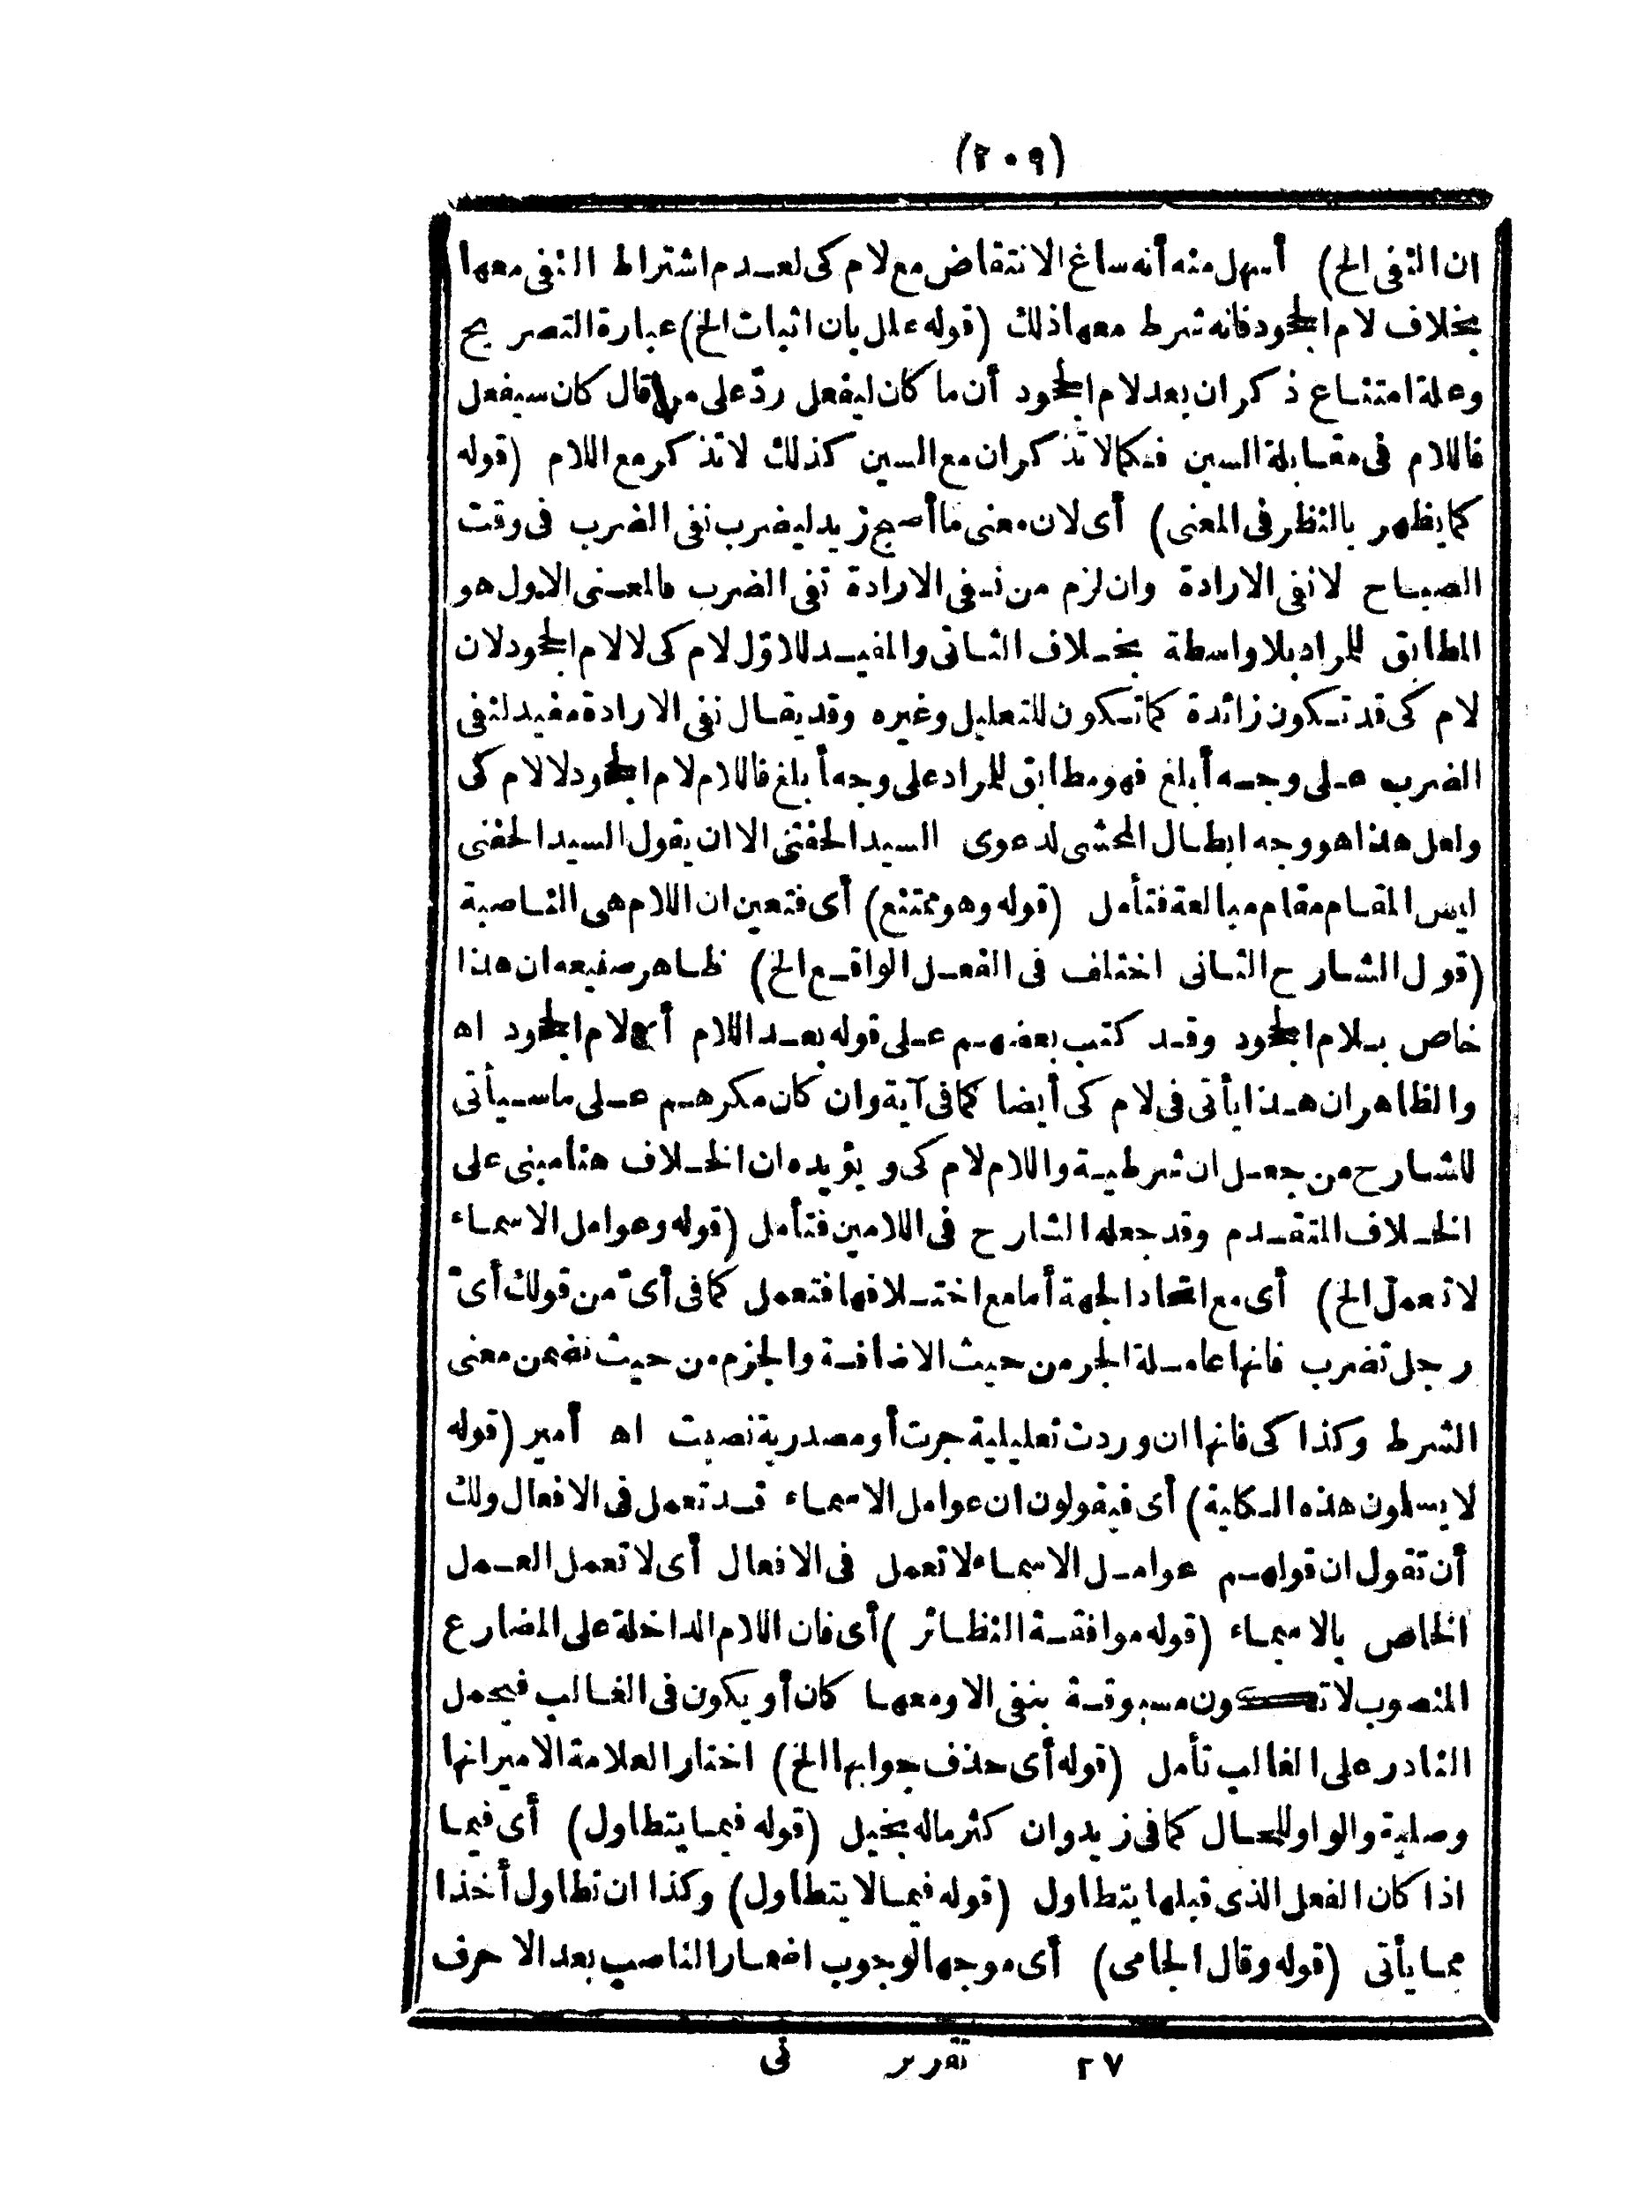 (٢٠٩)
ان النفى الخ) أسهل منه أنه ساغ الانتقاض مع لام كى لعدم اشتراط النفى معها
بخلاف لام الجحود فانه شرط معها ذلك (قوله علل بان اثبات الخ) عبارة التصريح
وعلة امتناع ذكر ان بعد لام الجحود أن ما كان ليفعل ردّ على من قال كان سيفعل
فاللام فى مقابلة السين فكما لا تذكر ان مع السين كذلك لا تذكر مع اللام (قوله
كما يظهر بالنظر فى المعنى) أى لان معنى ما أصبح زيد ليضرب نفى الضرب فى وقت
الصباح لا نفى الارادة وان لزم من نفى الارادة نفى الضرب فالمعنى الاول هو
المطابق للمراد بلا واسطة بخلاف الثانى والمفيد للاوّل لام كى لا لام الجحود لان
لام كى قد تكون زائدة كما تكون للتعليل وغيره وقد يقال نفى الارادة مفيد لنفى
الضرب على وجه أبلغ فهو مطابق للمراد على وجه أبلغ فاللام لام الجحود لا لام كى
ولعل هذا هو وجه ابطال المحشى لدعوى السيد الحفنى الا ان يقول السيد الحفنى
ليس المقام مقام مبالغة فتأمل (قوله وهو ممتنع) أى فتعين ان اللام هى الناصبة
(قول الشارح الثانى اختلف فى الفعل الواقع الخ) ظاهر صنيعه ان هذا
خاص بلام الجحود وقد كتب بعضهم على قوله بعد اللام أى لام الجحود اه
والظاهر ان هذا يأتى فى لام كى أيضا كما فى آية وان كان مكرهم على ما سيأتى
للشارح من جعل ان شرطية واللام لام كى ويؤيده ان الخلاف هنا مبنى على
الخلاف المتقدم وقد جعله الشارح فى اللامين فتأمل (قوله وعوامل الاسماء
لا تعمل الخ) أى مع اتحاد الجهة أما مع اختلافها فتعمل كما فى أىّ من قولك أىّ
رجل تضرب فانها عاملة الجر من حيث الاضافة والجزم من حيث تضمن معنى
الشرط وكذا كى فانها ان وردت تعليلية جرت أو مصدرية نصبت اه أمير (قوله
لا يسلمون هذه الكلية) أى فيقولون ان عوامل الاسماء قد تعمل فى الافعال ولك
أن تقول ان قولهم عوامل الاسماء لا تعمل فى الافعال أى لا تعمل العمل
الخاص بالاسماء (قوله موافقة النظائر) أى فان اللام الداخلة على المضارع
المنصوب لا تكون مسبوقة بنفى الا ومعها كان أو يكون فى الغالب فيحمل
النادر على الغالب تأمل (قوله أى حذف جوابها الخ) اختار العلامة الامير انها
وصلية والواو للحال كما فى زيد وان كثر ماله بخيل (قوله فيما يتطاول) أى فيما
اذا كان الفعل الذى قبلها يتطاول (قوله فيما لا يتطاول) وكذا ان تطاول أخذا
مما يأتى (قوله وقال الجامى) أى موجها لوجوب اضمار الناصب بعد الاحرف
٢٧ تقرير نى